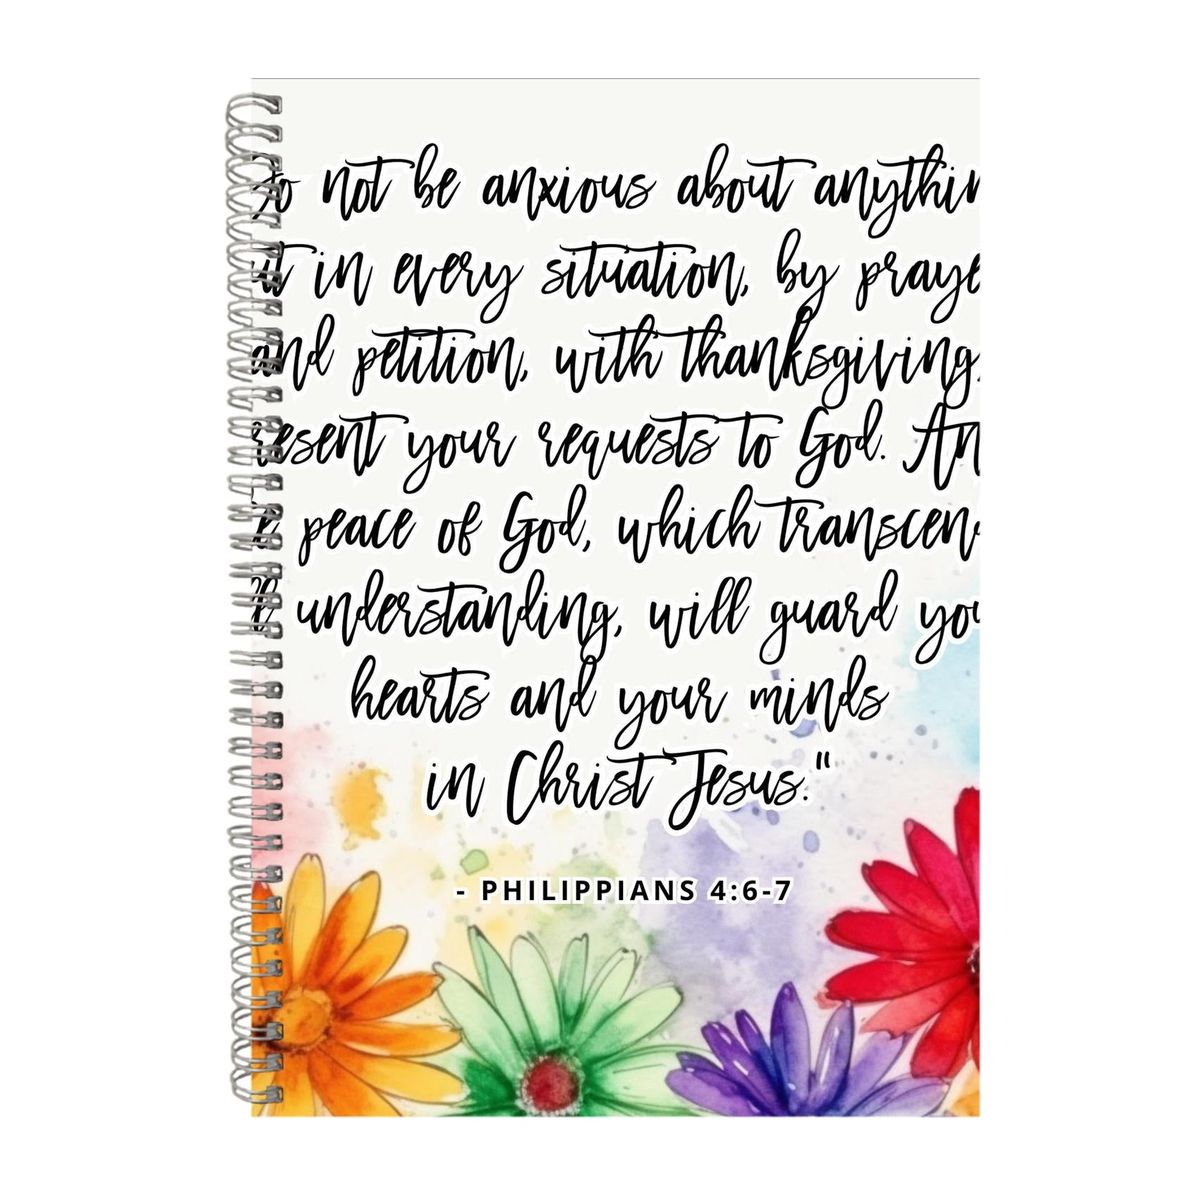 o not be anxious about anythin
ut in every situation, by praye
and petition, with thanksgiving,
resent your requests to God. An
e peace of God, which transcen
ll understanding, will guard you
hearts and your minds
in Christ Jesus."
- PHILIPPIANS 4:6-7